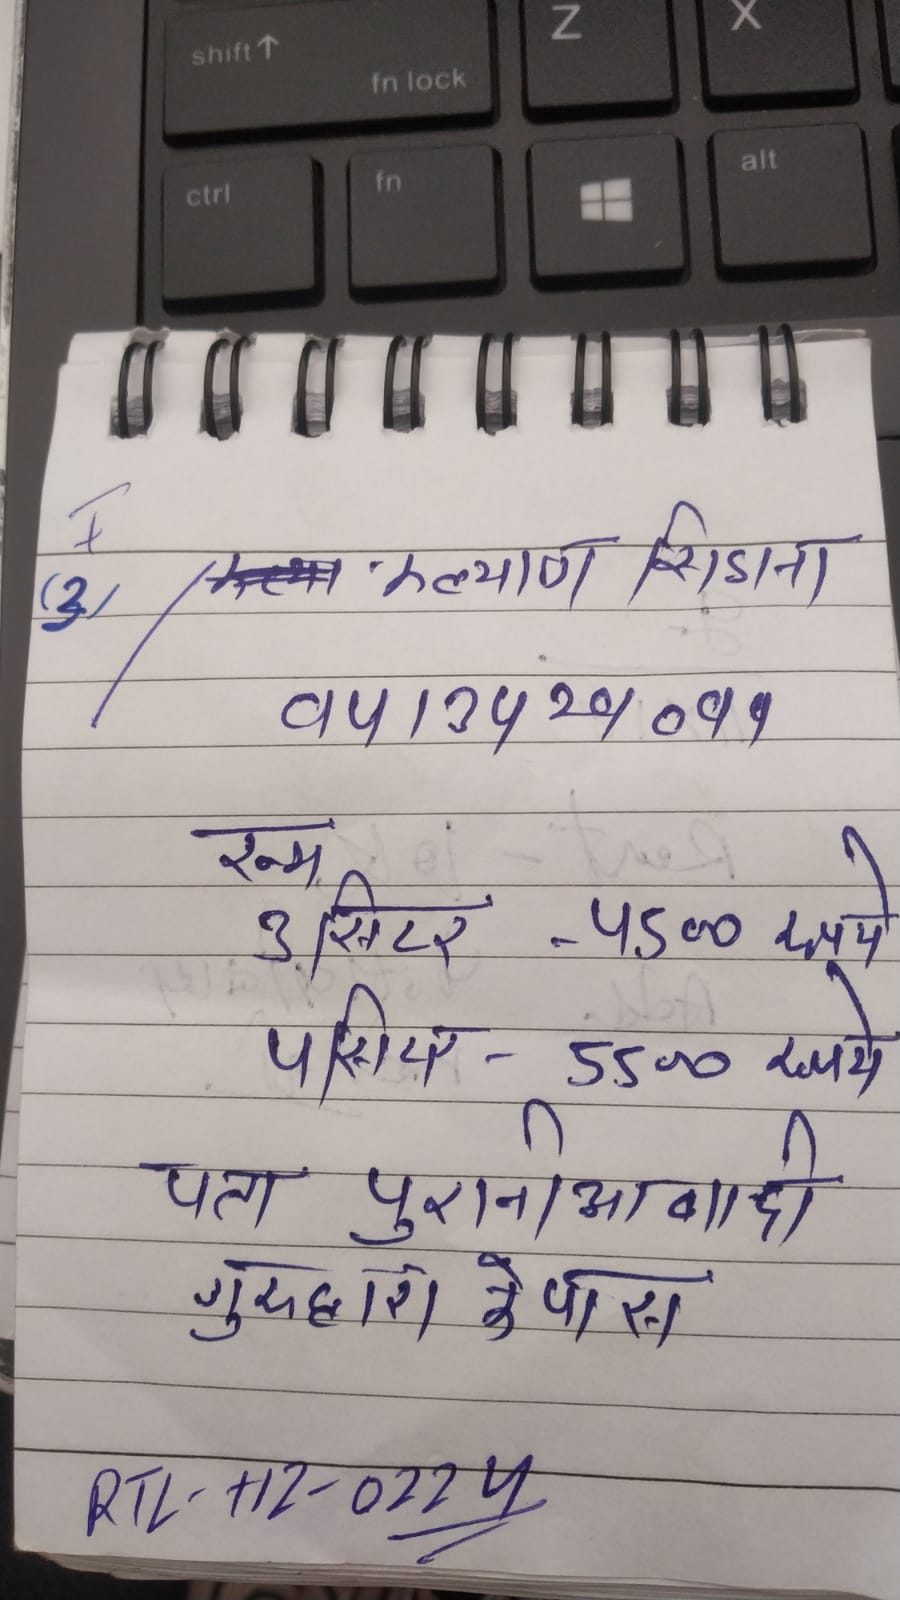 shift↑
fn lock
Z
X
ctrl
fn
alt
I
(3)
कल्याण सिडाना
रूम
3 सिटर - 4500 रूपये
4 सिटर - 5500 रूपये
पता पुरानी आबादी
गुरुद्वारा के पास
RTL-HZ-0224